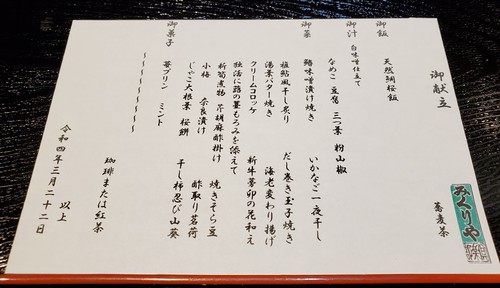 御献立
蕎麦茶
みくりや
御飯 天然鯛桜飯
御汁 白味噌仕立て
なめこ 豆腐 三つ葉 粉山椒
御菜 鰆味噌漬け焼き いかなご一夜干し
稚鮎風干し炙り だし巻き玉子焼き
湯葉バター焼き 海老変わり揚げ
クリームコロッケ 新牛蒡卯の花和え
独活に蕗の薹もろみを添えて
新筍煮物 芹胡麻酢掛け 焼きそら豆
小梅 奈良漬け 酢取り茗荷
じゃこ大根葉 桜餅 干し柿忍び山葵
御菓子 苺プリン ミント
〜〜〜〜〜〜〜〜〜
珈琲または紅茶
以上
令和四年三月二十二日